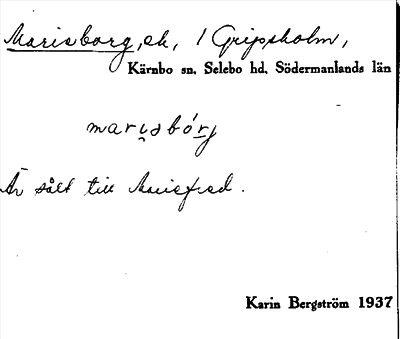 Marieborg, ek, / Gripsholm,
Kärnbo sn, Selebo hd, Södermanlands län
marisbórj
Är sålt till Mariefred.
Karin Bergström 1937